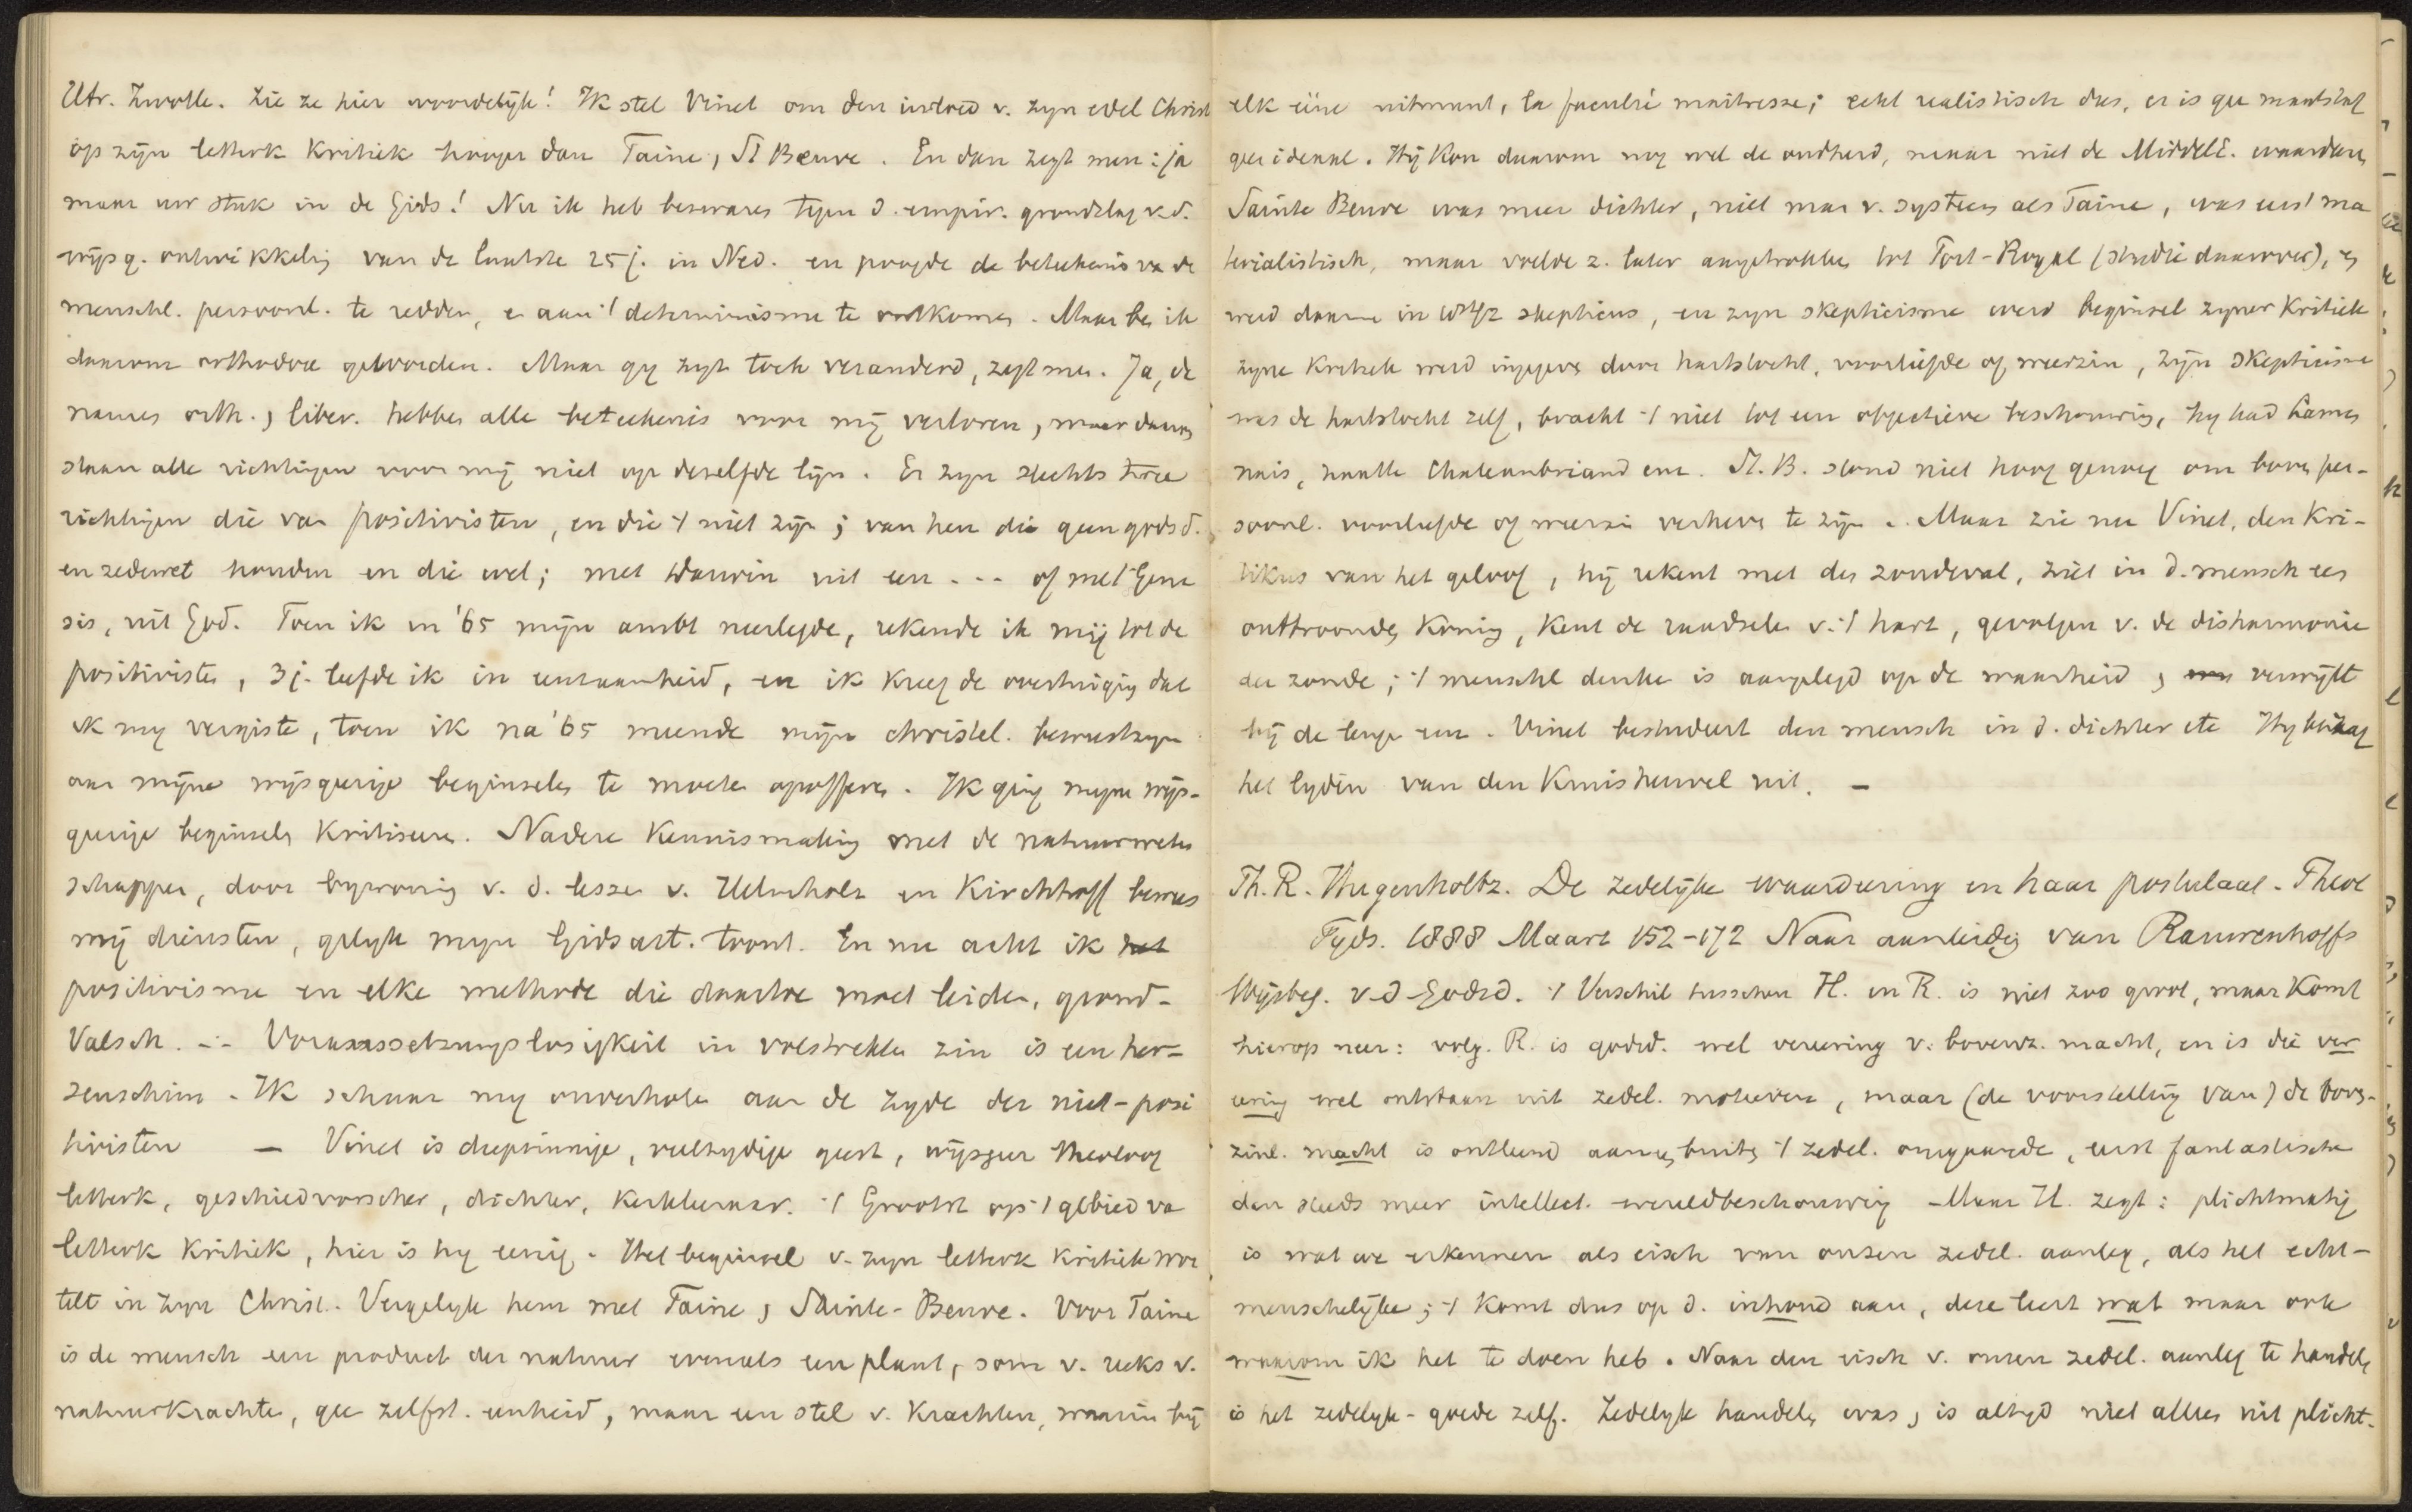 Utr. Zwolle. Zie ze hier woordelijk! Ik stel Vinet om den invloed v. zyn edel Christ
op zijn letterk Kritiek hooger dan Taine, St Beuve. En dan zegt men: ja
maar uw stuk in de Gids! Nu ik heb bezwaren tegen d. empir. grondslag v.d.
wijsg. ontwikkelig van de laatste 25 j. in Ned. en poogde de beteekenis va de
menschl. persoonl. te redden, e aan 't determinisme te ontkomen. Maar be ik
daarom orthodox geworden. Maar gy zyt toch veranderd, zegt men. Ja, de
names orth., liber. hebben alle beteekenis voor mij verloren, maar daarom
staan alle richtingen voor mij niet op deselfde lijn. Er zyn slechts twee
richtingen die van positivisten, en die 't niet zijn; van hen die geen godsd.
en zedewet houden en die wel; met Darwin uit een --- of met Gene
sis, uit God. Toen ik in '65 mijn ambt neerlegde, rekende ik mij tot de
positivisten, 3 j. leefde ik in eenzaamheid, en ik kreeg de overtuiging dat
ik my vergiste, toen ik na '65 meende mijn christel. bewustzyn
aan mijne wijsgeerige beginselen te moeten opofferen. Ik ging myne wijs-
geerige beginsels kritiseeren. Nadere kennismaking met de natuurweten
schappen, door bywoning v. d. lessen v. Helmholz en Kirchhoff bewees
mij diensten, gelyk myn Gidsart. toont. En nu acht ik het
positivisme en elke methode die daartoe moet leiden, grond-
valsch. -- Voraussetzungslosigkeit in volstrekten zin is een her-
senschim. Ik schaar my onverholen aan de zyde der niet-posi
tivisten — Vinet is diepzinnige, veelzydige geest, wijsgeer theoloog
letterk, geschiedvorscher, dichter, kerkleeraar. 't Grootst op 't gebied va
letterk Kritiek, hier is hy eenig. Het beginsel v. zyn letterk Kritiek wor
telt in zyn Christ. Vergelyk hem met Taine, Sainte-Beuve. Voor Taine
is de mensch een product der natuur evenals een plant, som v. reeks v.
natuurkrachten, gee zelfst. eenheid, maar een stel v. Krachten, waarin bij
elk eene uitmunt, la faculté maitresse; echt realistisch dus, er is gee maatstaf
geen ideaal. Hij kon daarom nog wel de oudheid, maar niet de MiddelE. waardeeren
Sainte Beuve was meer dichter, niet man v. systeem als Taine, was eerst ma
terialistisch, maar voelde z. later aangetrokken tot Port-Royal (studie daarover), en
werd daarna in skepticus, en zyn skepticisme werd beginsel zyner Kritiek
zyne Kritiek werd ingegeven door hartstocht, voorliefde of weerzin, zijn skepticisme
was de hartstocht zelf, bracht 't niet tot een objectieve beschouwing, hy had Lamen
nais, haatte Chateaubriand enz. St. B. stond niet hoog genoeg om boven per-
soonl. voorliefde of weerzin verheven te zijn. Maar zie nu Vinet, den Kri-
tikus van het geloof, hij rekent met den zondeval, ziet in d. mensch een
onttroonden Koning, kent de raadselen v. 't hart, gevolgen v. de disharmonie
der zonde; 't menschl denken is aangelegd op de waarheid, verwijst
hij de leuge enz. Vinet bestudeert den mensch in d. dichter etc Hy
het lyden van den Kruisheuvel uit. —
Th. R. Hugenholtz. De zedelijke waardeering en haar postulaat. Theol
Tyds. 1888 Maart 152-172 Naar aanleidig van Rauwenhoffs
Wijsbeg. v d Godsd. 't Verschil tusschen H. en R. is niet zoo groot, maar komt
hierop neer: volg. R. is godsd. wel vereering v. bovenz. macht, en is die ver
eering wel ontstaan uit zedel. motieven, maar (de voorstelling van) de boven-
zinl. macht is ontleend aan buiten 't zedel. omgaande, eerst fantastische
dan steeds meer intellect. wereldbeschouwing - Maar H. zegt: plichtmatig
is wat we erkennen als eisch van onzen zedel. aanleg, als het echt-
menschelijke; 't komt dus op d. inhoud aan, deze leert wat maar ook
waarom ik het te doen heb. Naar den eisch v. onzen zedel. aanleg te handelen
is het zedelyk-goede zelf. Zedelyk handelen was, is altyd niet alles uit plicht-